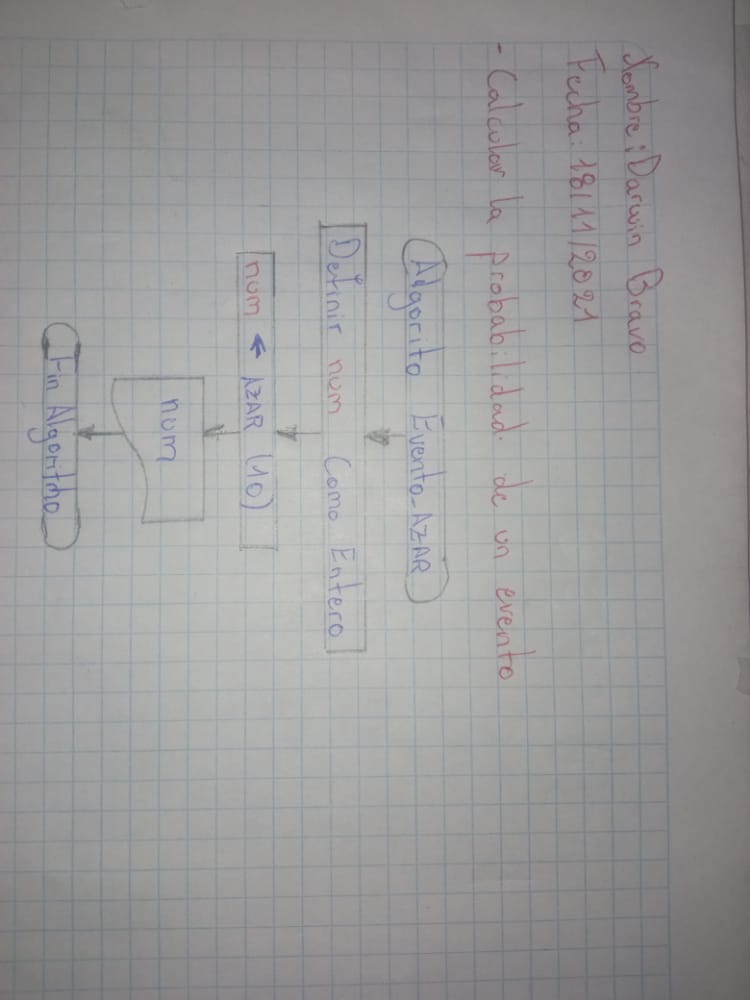 Nombre: Darwin Bravo
Fecha: 18/11/2021
- Calcular la probabilidad de un evento
Algorito Evento-AZAR
Definir num Como Entero
num ← AZAR (10)
num
Fin Algoritmo